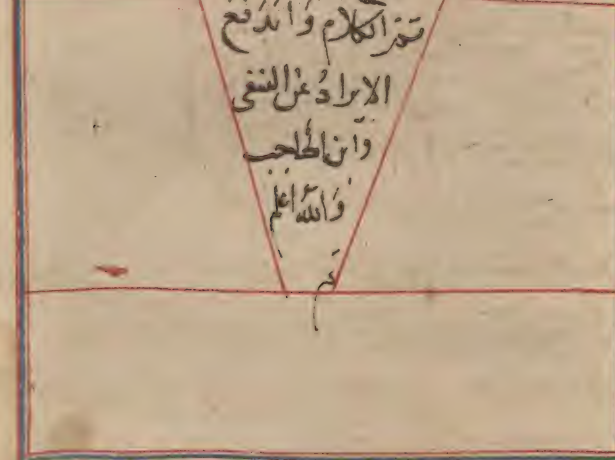 تم الكلام واندفع
الايراد عن النسفى
وابن الحاجب
والله اعلم
تم